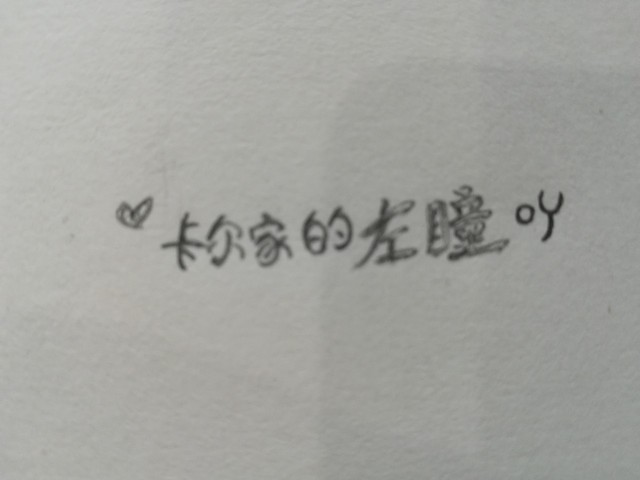 ♡卡尔家的左瞳吖